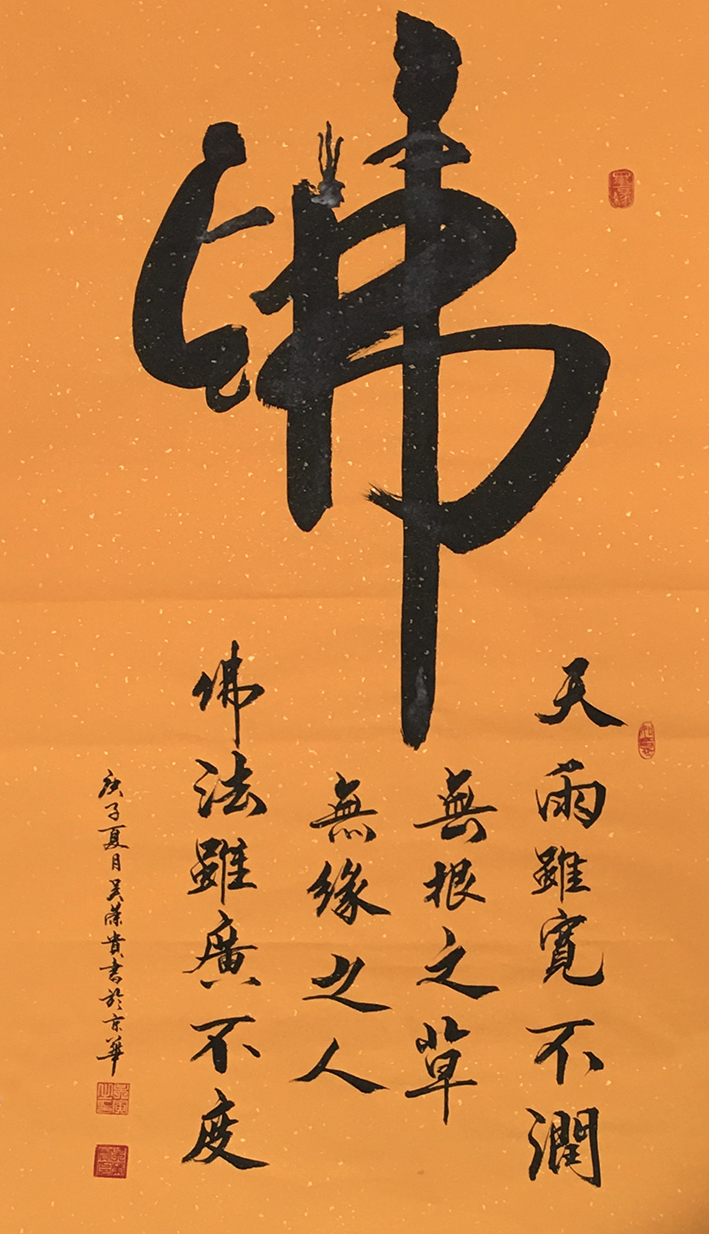 佛
天雨雖寬不潤
無根之草
佛法雖廣不度
無緣之人
庚子夏月吳榮貴書於京華